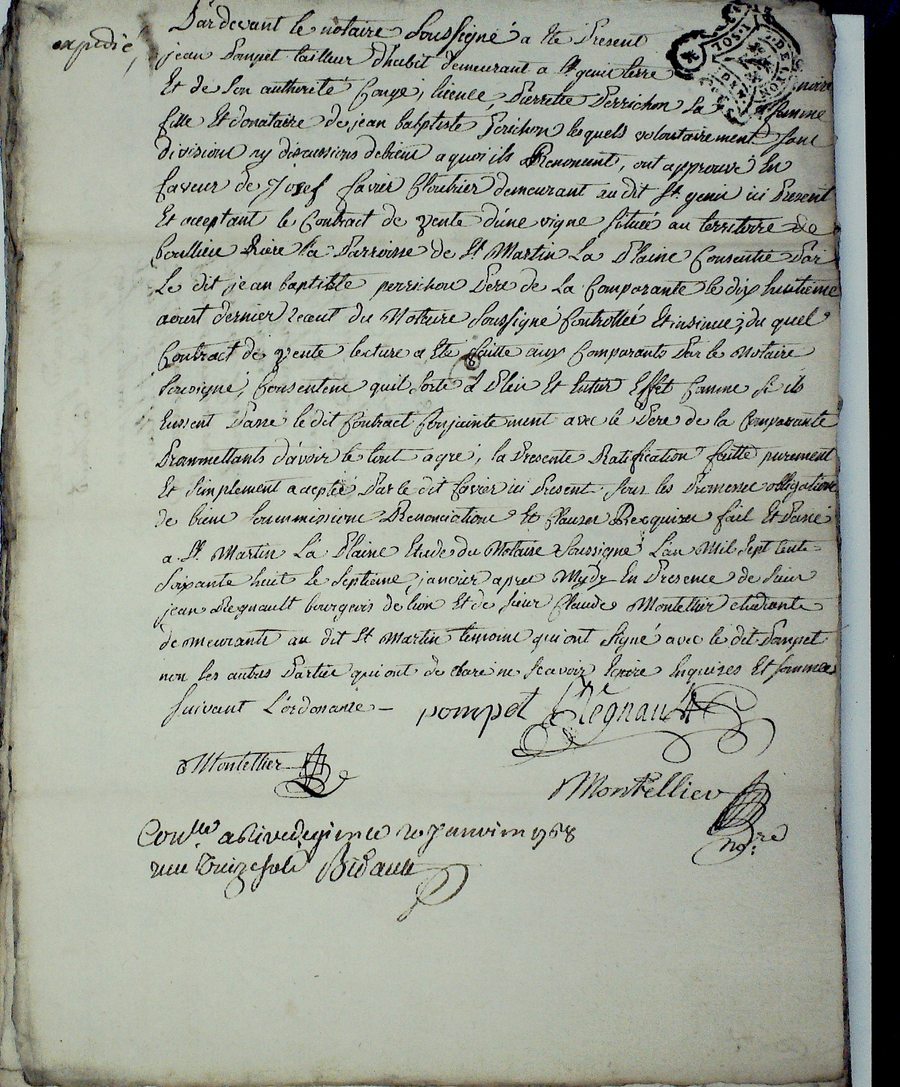 expedié
Pardevant le notaire soussigné a ete Present
jean pompet tailleur d'habit demeurant a St genis terre noire
Et de son authorité Congé, licence, Pierrette Perrichon sa femme
fille Et donataire de jean baptiste perichon lesquels volontairement sans
divisions ny discussions de biens a quoi ils Renoncent, ont approuvé En
faveur de Josef favier Cloutrier demeurant au dit St genis ici Present
Et acceptant le Contract de vente d'une vigne située au territoire de
Paroisse de St Martin La Plaine Consentie Par
Le dit jean baptiste perrichon Pere de La Comparante le dix huitieme
aoust dernier Receu du Notaire Soussigné Controllée Et insinué, du quel
Contract de vente lecture a Ete faitte aux Comparants Par le Notaire
soussigné, Consentent qu'il sorte a Plein Et Entier Effet Comme si ils
Eussent Passé le dit Contract Conjointement avec le Pere de la Comparante
Promettants d'avoir le tout agré, la Presente Ratification faitte purement
Et simplement acceptée Par le dit favier ici Present sous les Promesse obligation
de biens soummissions Renonciations Et Clauses Requises fait Et Passé
a St Martin La Plaine Etude du Notaire Soussigné L'an Mil Sept Cents
Soixante huit Le Septieme janvier apres Mydy En Presence de sieur
jean Regnault bourgeois de lion Et de sieur Claude Montellier
demeurants au dit St Martin temoins qui ont signé avec le dit Pompet
non les autres Parties qui ont declaré ne scavoir Ecrire Enquises Et sommées
suivant L'ordonance –
pompet Regnault
Montellier
Montellier
nore
Conlle a Rivedegier le 20 Janvier 1768
reçu treize sols Bidault